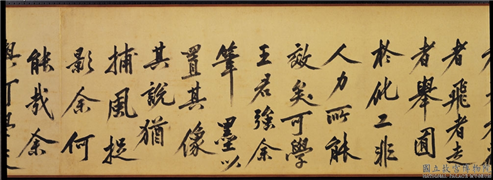 者飛者走
者舉囿
於化工非
人力所能
致矣可學
王君強余
筆墨以
置其像
其說猶
捕風捉
影余何
能哉余
國立故宮博物院